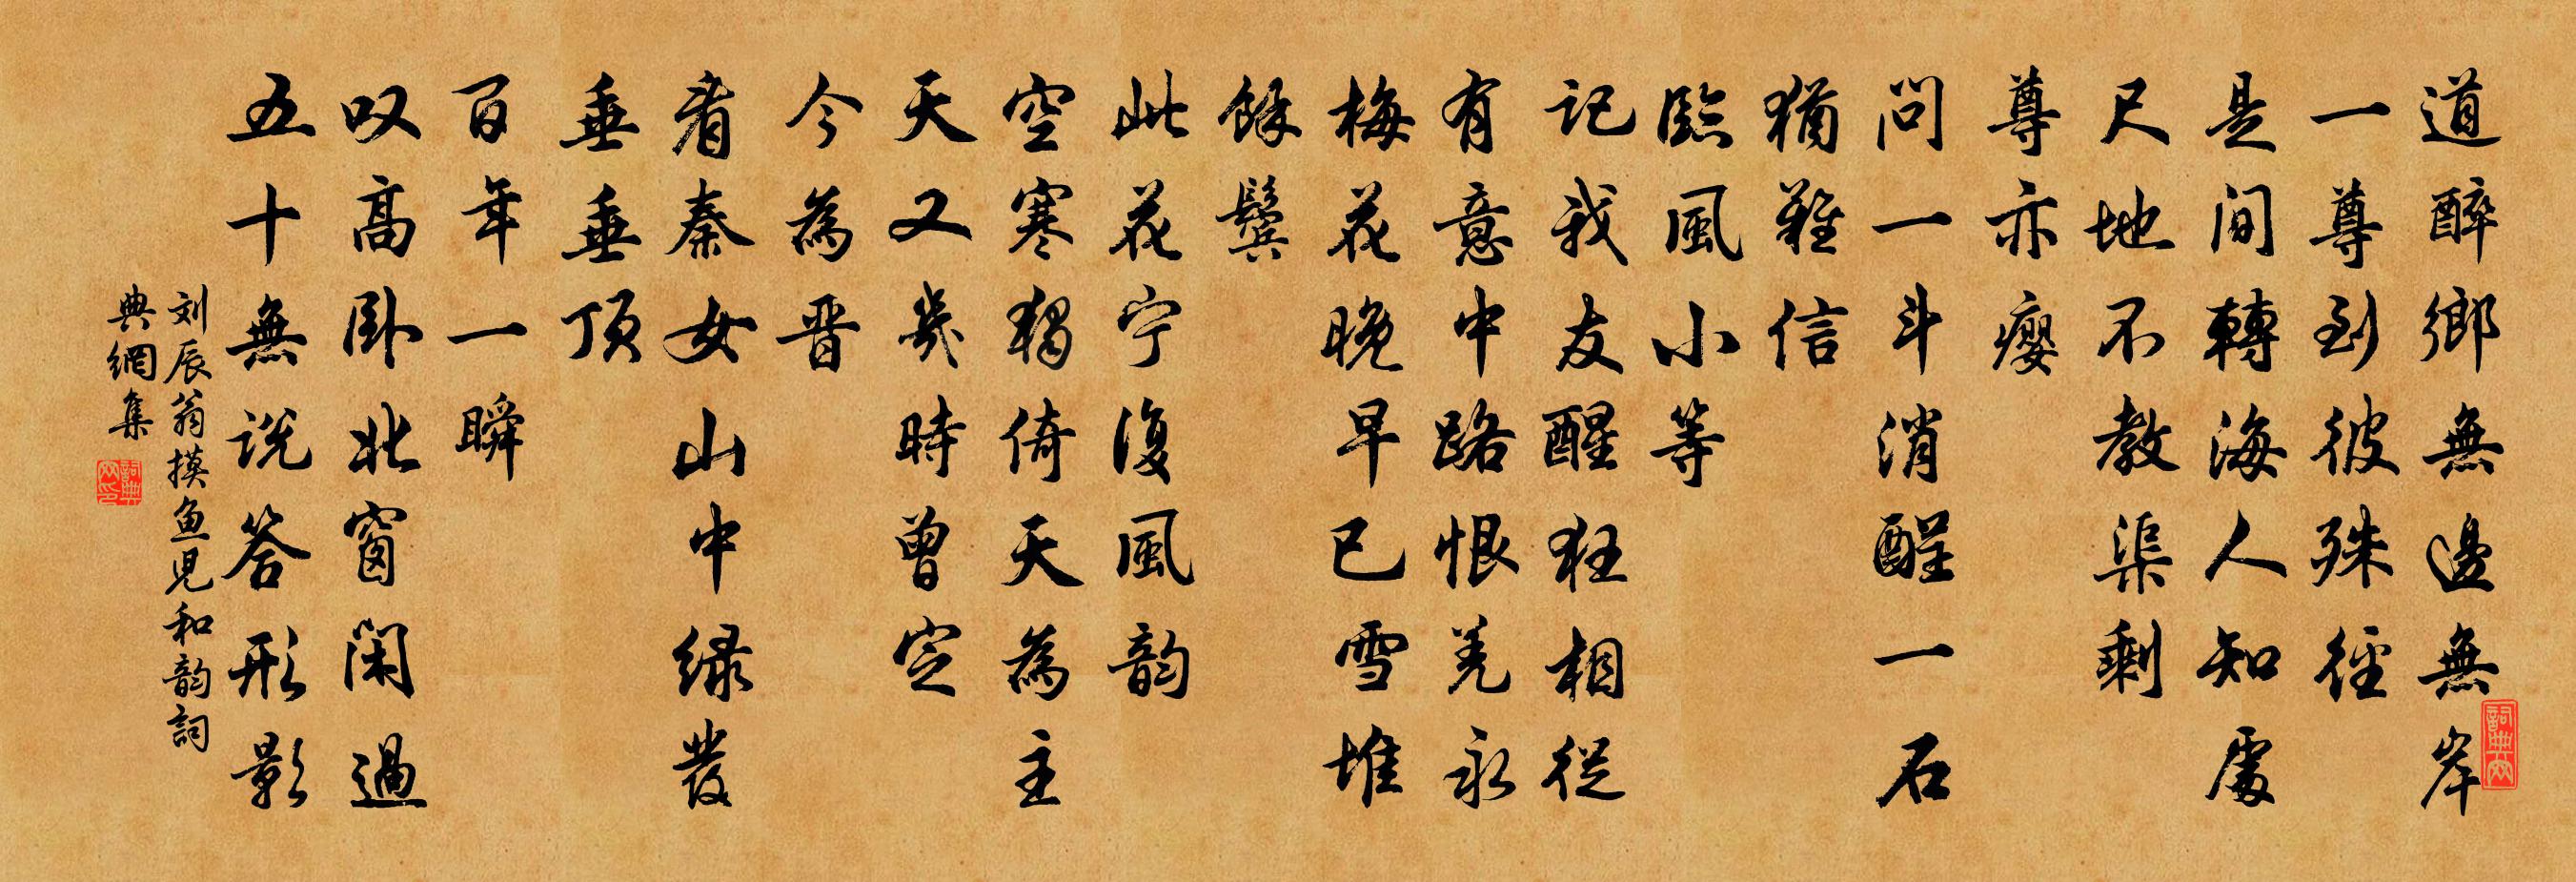 道醉鄉無邊無岸
一尊到彼殊徑
是間轉海人知處
尺地不教渠剩
尊亦癭
問一斗消醒一石
猶難信
臨風小等
記我友醒狂相從
有意中路恨羌永
梅花晚早已雪堆
餘鬢
此花宁復風韵
空寒獨倚天為主
天又幾時曾定
今為晋
看秦女山中绿發
垂垂頂
百年一瞬
叹高卧北窗闲過
五十無说答形影
刘辰翁摸鱼児和韵詞
典網集
詞典网
詞典网印